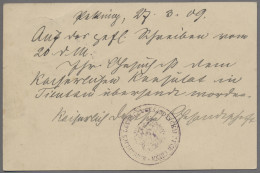 Peking, 27.3.09.
Auf das gefl. Schreiben vom
20. d. M.
Ihr Gesuch ist dem
Kaiserlichen Konsulat in
Tientsin übersandt worden.
Kaiserlich Deutsche Gesandtschaft